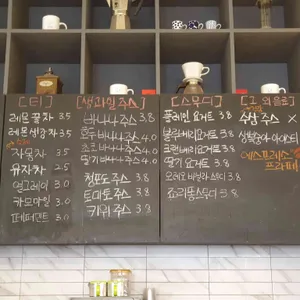 [티]
레몬꿀차 3.5
레몬생강차 3.5
자몽차 3.5
유자차 2.5
얼그레이 3.0
카모마일 3.0
페퍼민트 3.0
[생과일 주스]
바나나 주스 3.8
호두 바나나 주스 4.0
초코 바나나 주스 4.0
딸기 바나나 주스 4.0
청포도 주스 3.8
토마토 주스 3.8
키위 주스 3.8
[스무디]
플레인 요거트 3.8
블루베리 요거트 3.8
크랜베리 요거트 3.8
딸기 요거트 3.8
오레오 바닐라 스무디 3.8
초리퐁 스무디 3.8
[그 외 음료]
수박 주스 X
상복숭아 아이스티
에스프레소
프라페